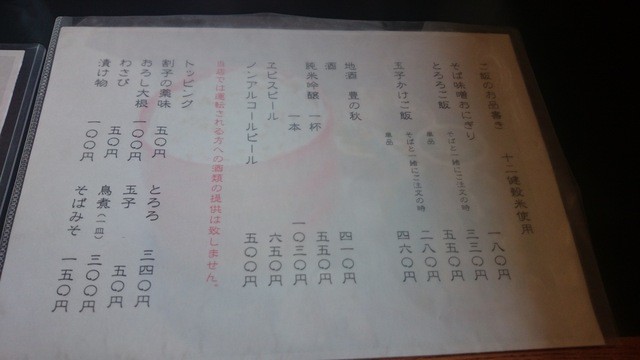 ご飯のお品書き　十二健穀米使用
そば味噌おにぎり　一八〇円
とろろご飯　そばと一緒にご注文の時　三三〇円
単品　五五〇円
玉子かけご飯　そばと一緒にご注文の時　二八〇円
単品　四六〇円
地酒　豊の秋
酒　四一〇円
純米吟醸　一杯　五五〇円
一本　一〇三〇円
ヱビスビール　六五〇円
ノンアルコールビール　五〇〇円
当店では運転される方への酒類の提供は致しません。
トッピング
割子の薬味　五〇円　とろろ　三四〇円
おろし大根　一〇〇円　玉子　五〇円
わさび　五〇円　鳥煮(一皿)　三〇〇円
漬け物　一〇〇円　そばみそ　一五〇円